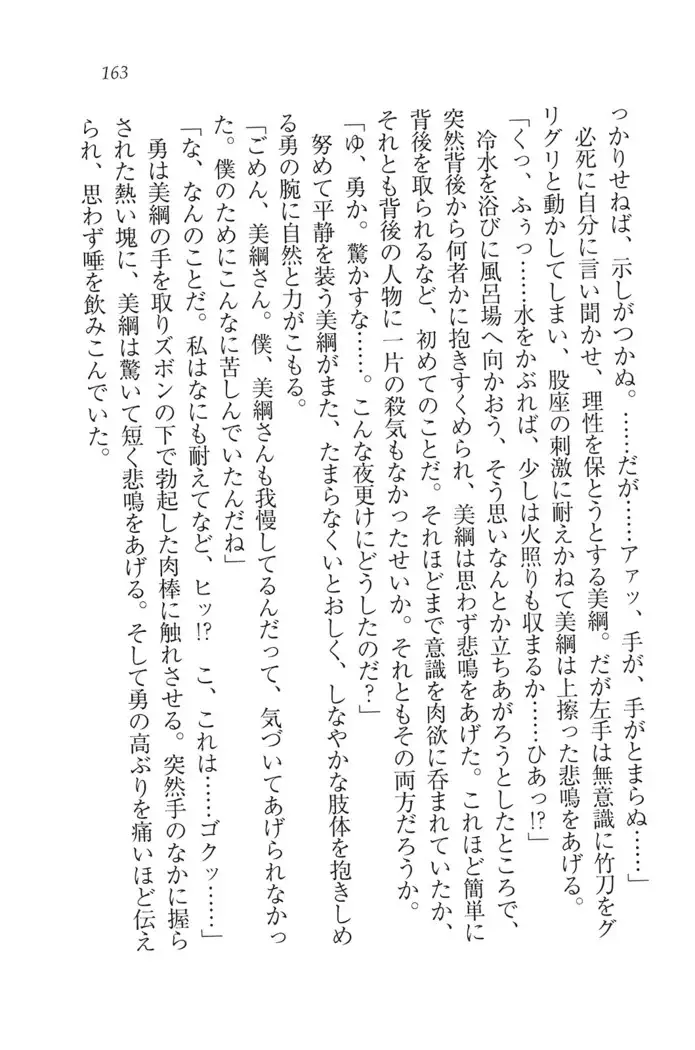 163
っかりせねば、示しがつかぬ。……だが……アァッ、手が、手がとまらぬ……」
必死に自分に言い聞かせ、理性を保とうとする美綱。だが左手は無意識に竹刀をグ
リグリと動かしてしまい、股座の刺激に耐えかねて美綱は上擦った悲鳴をあげる。
「くっ、ふぅっ……水をかぶれば、少しは火照りも収まるか……ひあっ!?」
冷水を浴びに風呂場へ向かおう、そう思いなんとか立ちあがろうとしたところで、
突然背後から何者かに抱きすくめられ、美綱は思わず悲鳴をあげた。これほど簡単に
背後を取られるなど、初めてのことだ。それほどまで意識を肉欲に呑まれていたか、
それとも背後の人物に一片の殺気もなかったせいか。それともその両方だろうか。
「ゆ、勇か。驚かすな……。こんな夜更けにどうしたのだ?」
努めて平静を装う美綱がまた、たまらなくいとおしく、しなやかな肢体を抱きしめ
る勇の腕に自然と力がこもる。
「ごめん、美綱さん。僕、美綱さんも我慢してるんだって、気づいてあげられなかっ
た。僕のためにこんなに苦しんでいたんだね」
「な、なんのことだ。私はなにも耐えてなど、ヒッ!?　こ、これは……ゴクッ……」
勇は美綱の手を取りズボンの下で勃起した肉棒に触れさせる。突然手のなかに握ら
された熱い塊に、美綱は驚いて短く悲鳴をあげる。そして勇の高ぶりを痛いほど伝え
られ、思わず唾を飲みこんでいた。